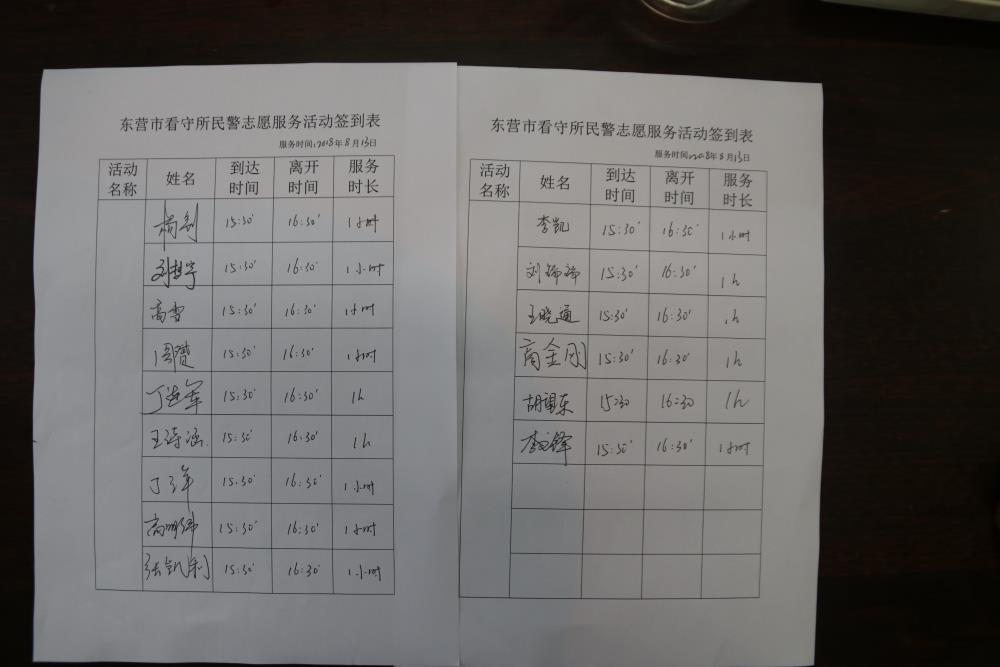 东营市看守所民警志愿服务活动签到表
服务时间:2018年8月13日
活动名称 姓名 到达时间 离开时间 服务时长
15:30' 16:30' 1小时
15:30' 16:30' 1小时
高雪 15:30' 16:30' 1小时
周赞 15:30' 16:30' 1小时
丁进军 15:30' 16:30' 1h
王诗涵 15:30' 16:30' 1h
15:30' 16:30' 1小时
15:30' 16:30' 1小时
张凯利 15:30' 16:30' 1小时
东营市看守所民警志愿服务活动签到表
服务时间:2018年8月13日
活动名称 姓名 到达时间 离开时间 服务时长
李凯 15:30' 16:30' 1小时
刘 15:30' 16:30' 1h
王晓通 15:30' 16:30' 1h
商金刚 15:30' 16:30' 1h
胡望东 15:30 16:30 1h
15:30' 16:30' 1小时